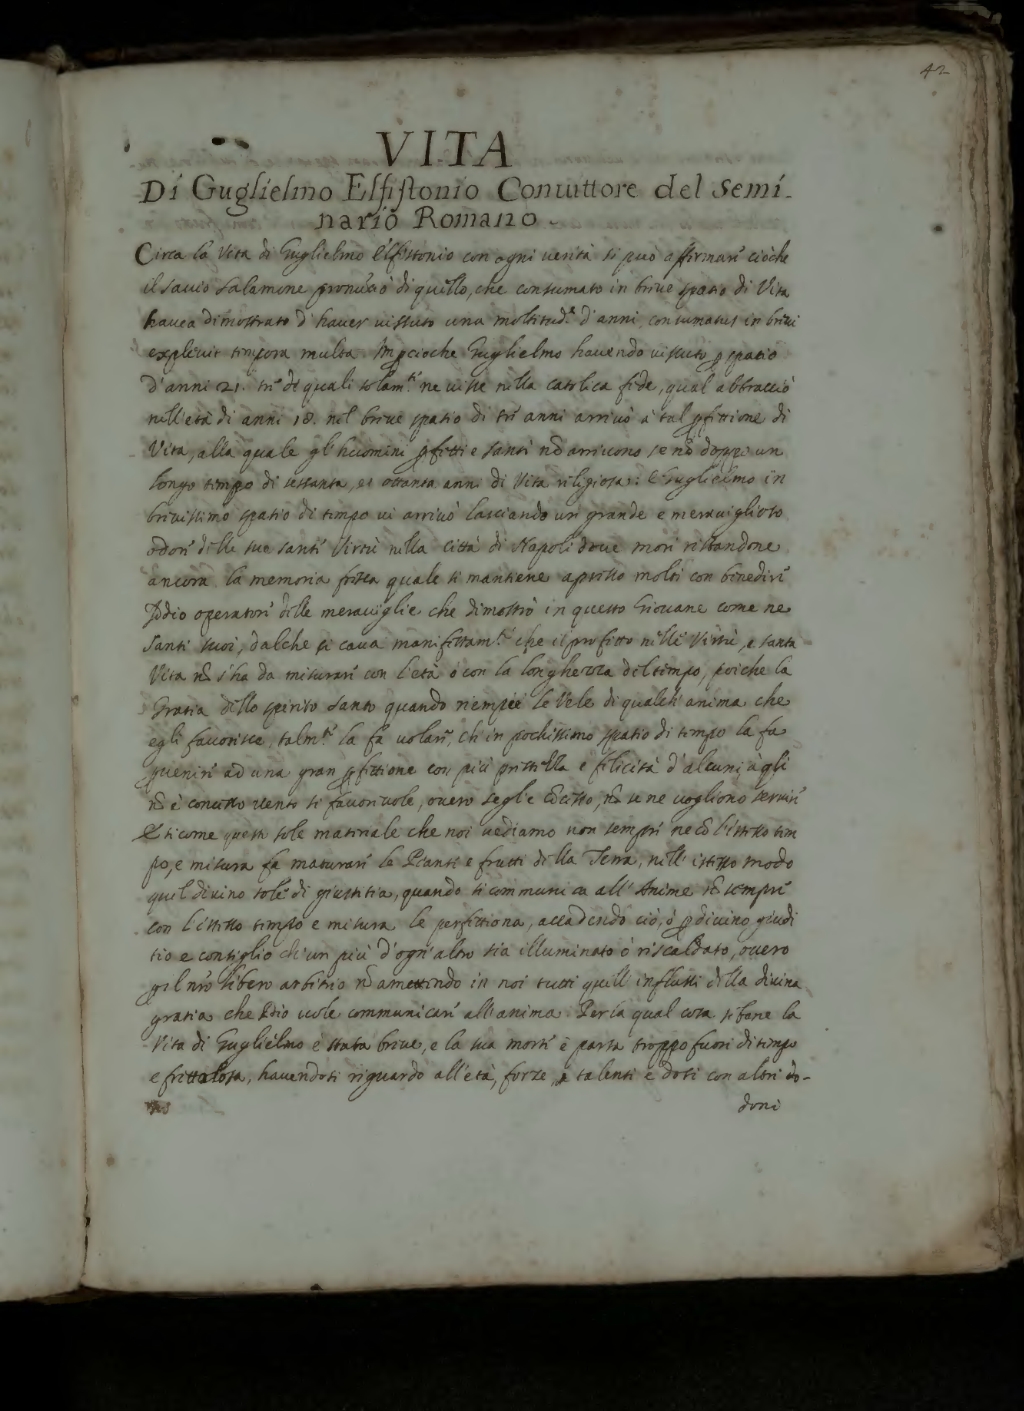 42
VITA
Di Guglielmo Elfistonio Conuittore del Semi-
nario Romano
Circa la Vita di Guglielmo Elfistonio con ogni uerità si può affirmari ciòche
il sauio Salamone pronuciò di quello, che consumato in briue spatio di Vita
hauea dimostrato d'hauer uissuto una moltitud.e d'anni, consumatus in briui
expleuit tempora multa. Impcioche Guglielmo hauendo uissuto p spatio
d'anni 21. tre de quali solam.te ne uisse nella catolica fide, qual abbracciò
nell'età di anni 18. nel briue spatio di tre anni arriuò à tal pfettione di
Vita, alla quale gl'huomini pfetti e santi nõ arriuono se nõ doppo un
longo tempo di sessanta, et ottanta anni di Vita religiosa: E Guglielmo in
breuissimo spatio di tempo ui arriuò lasciando un grande e merauiglioso
odore delle sue sante Virtù nella città di Napoli doue morì restandone
ancora la memoria fresca quale si mantiene appresso molti con benedire
Iddio operatore delle merauiglie che dimostrò in questo Giouane come ne
Santi suoi, dalche si caua manifestam.te che il profitto nelle Virtù, e santa
Vita nõ s'ha da misurare con l'età ò con la longhezza del tempo, poiche la
Gratia dello spirito Santo quando riempie le Vele di qualche anima che
egli fauorisce, talm.te la fa uolare, ch'in pochissimo spatio di tempo la fa
pueniri ad una gran pfettione con più prestezza e felicità d'alcuni à qli
nõ è concesso uento si fauoreuole, ouero se gl'è cõcesso, nõ se ne uogliono seruire
E sicome questo sole materiale che noi uediamo non sempre ne cõ l'istesso tem
po, e misura fa maturare le Piante e frutti della Terra, nell'istesso modo
quel diuino sole di giustitia, quando si communica all'Anime nõ sempre
con l'istesso tempo e misura le perfettiona, accadendo ciò, ò p diuino giudi
tio e consiglio ch'un più d'ogn'altro sia illuminato ò riscaldato, ouero
p il nro libero arbitrio nõ amettendo in noi tutti quelli influssi della diuina
gratia che Idio uole communicare all'anima. Per la qual cosa se bene la
Vita di Guglielmo è stata briue, e la sua morte è parsa troppo fuori di tempo
e frettolosa, hauendosi riguardo all'età, forze, e talenti e doti con altri do-
doni